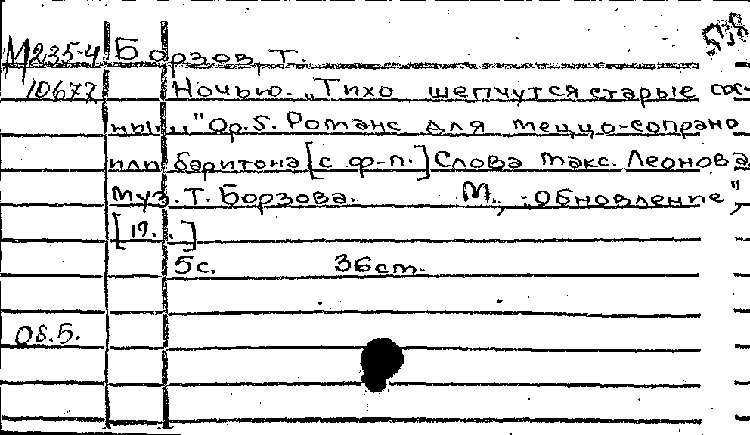 538
М235-4 Борзов, Т.
10677 Ночью. „Тихо шепчутся старые сос-
ны..." Ор.5. Романс для меццо-сопрано
или баритона [с ф-п.] Слова Макс. Леонова
Муз. Т. Борзова. М., „Обновление",
[19..]
5с. 36см.
08.5.